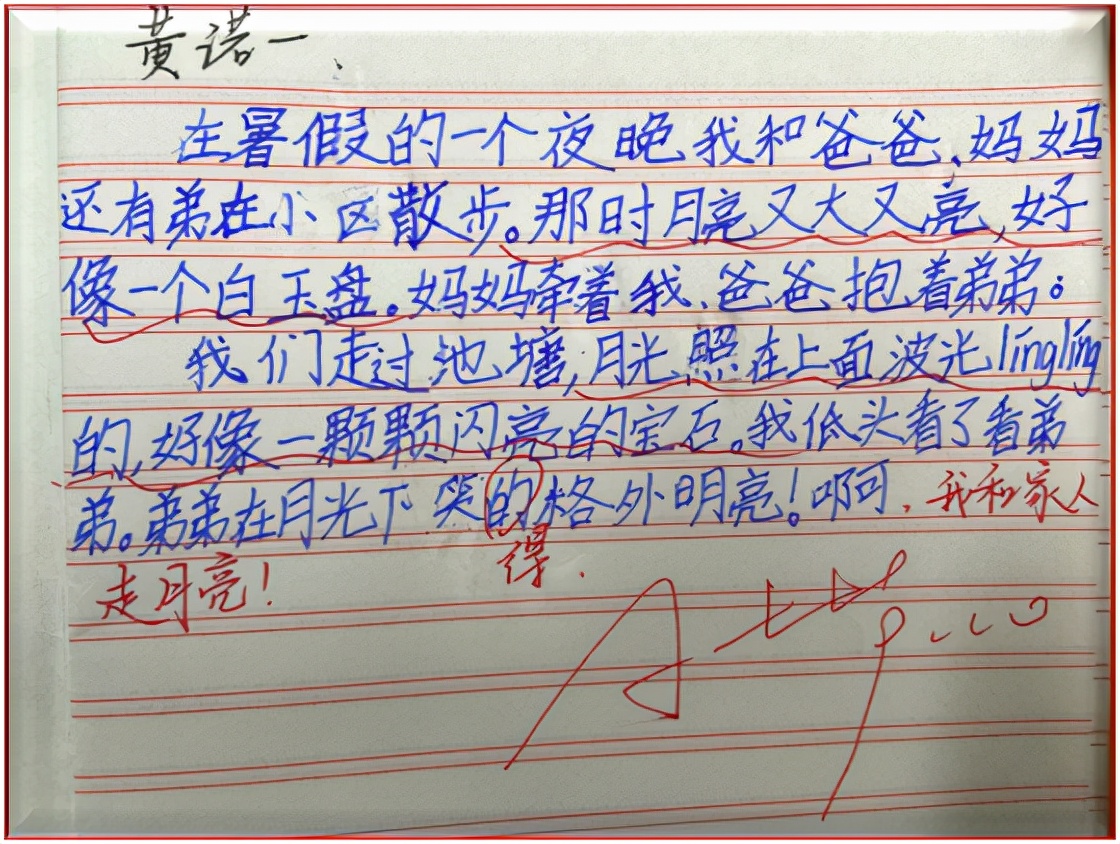 黄诺一、
在暑假的一个夜晚我和爸爸、妈妈
还有弟在小区散步。那时月亮又大又亮,好
像一个白玉盘。妈妈牵着我、爸爸抱着弟弟。
我们走过池塘,月光照在上面波光lingling
的,好像一颗颗闪亮的宝石。我低头看了看弟
弟。弟弟在月光下笑的格外明亮!啊,我和家人
得.
走月亮!